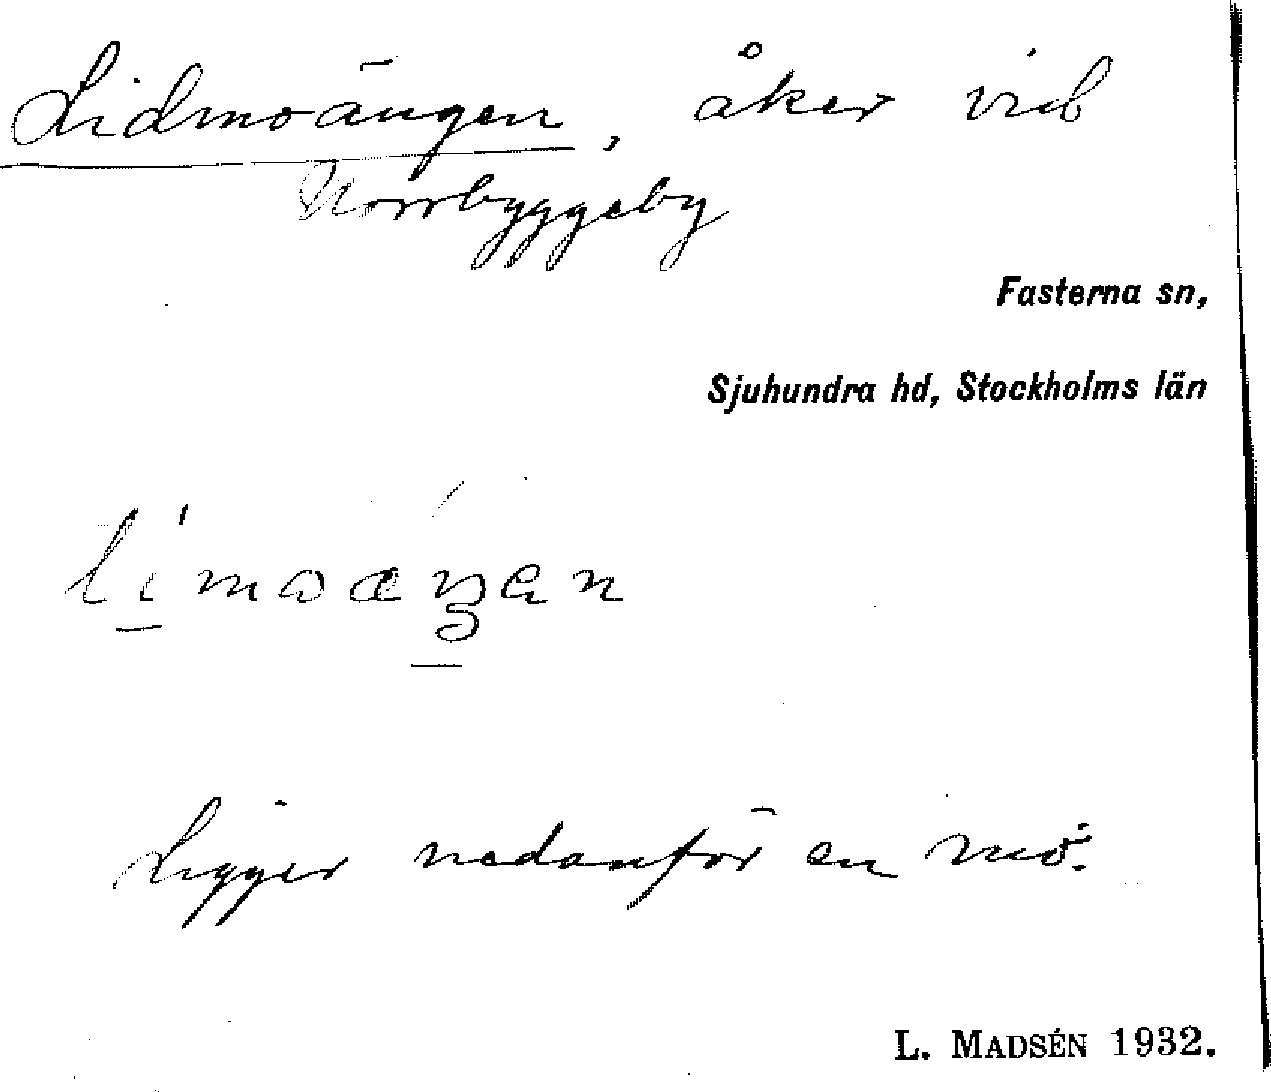 Lidmoängen, åker vid
Norrbyggeby
Fasterna sn,
Sjuhundra hd, Stockholms län
Ligger nedanför en mo.
L. MADSÉN 1932.